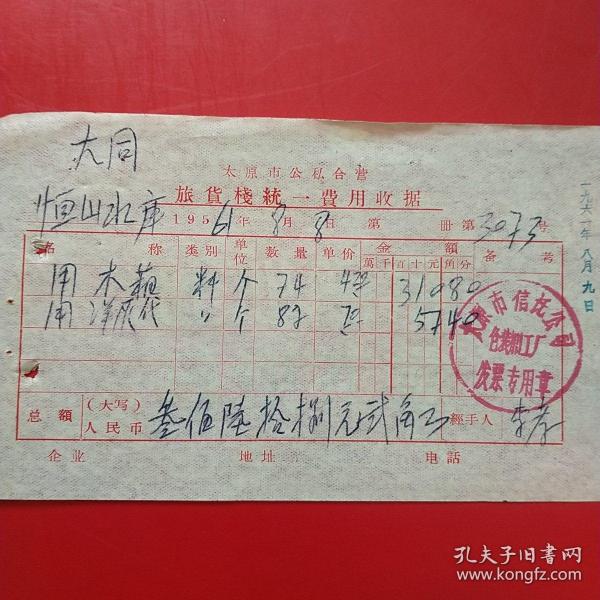 大同
太原市公私合营
恒山水库 旅貨棧統一費用收据
19561年8月8日 第 册第3073号
名称 类别 单位 数量 单价 金額 萬千百十元角分 备考
用木箱 料 个 74 310 80
用洋灰代 〃 个 82 57 40
总額 (大写)人民币 叁佰陆拾捌元贰角 經手人
企业 地址 电話
市信托公司
仓装修工厂
发票专用章
一九六一年八月九日
孔夫子旧书网
www.kongfz.com